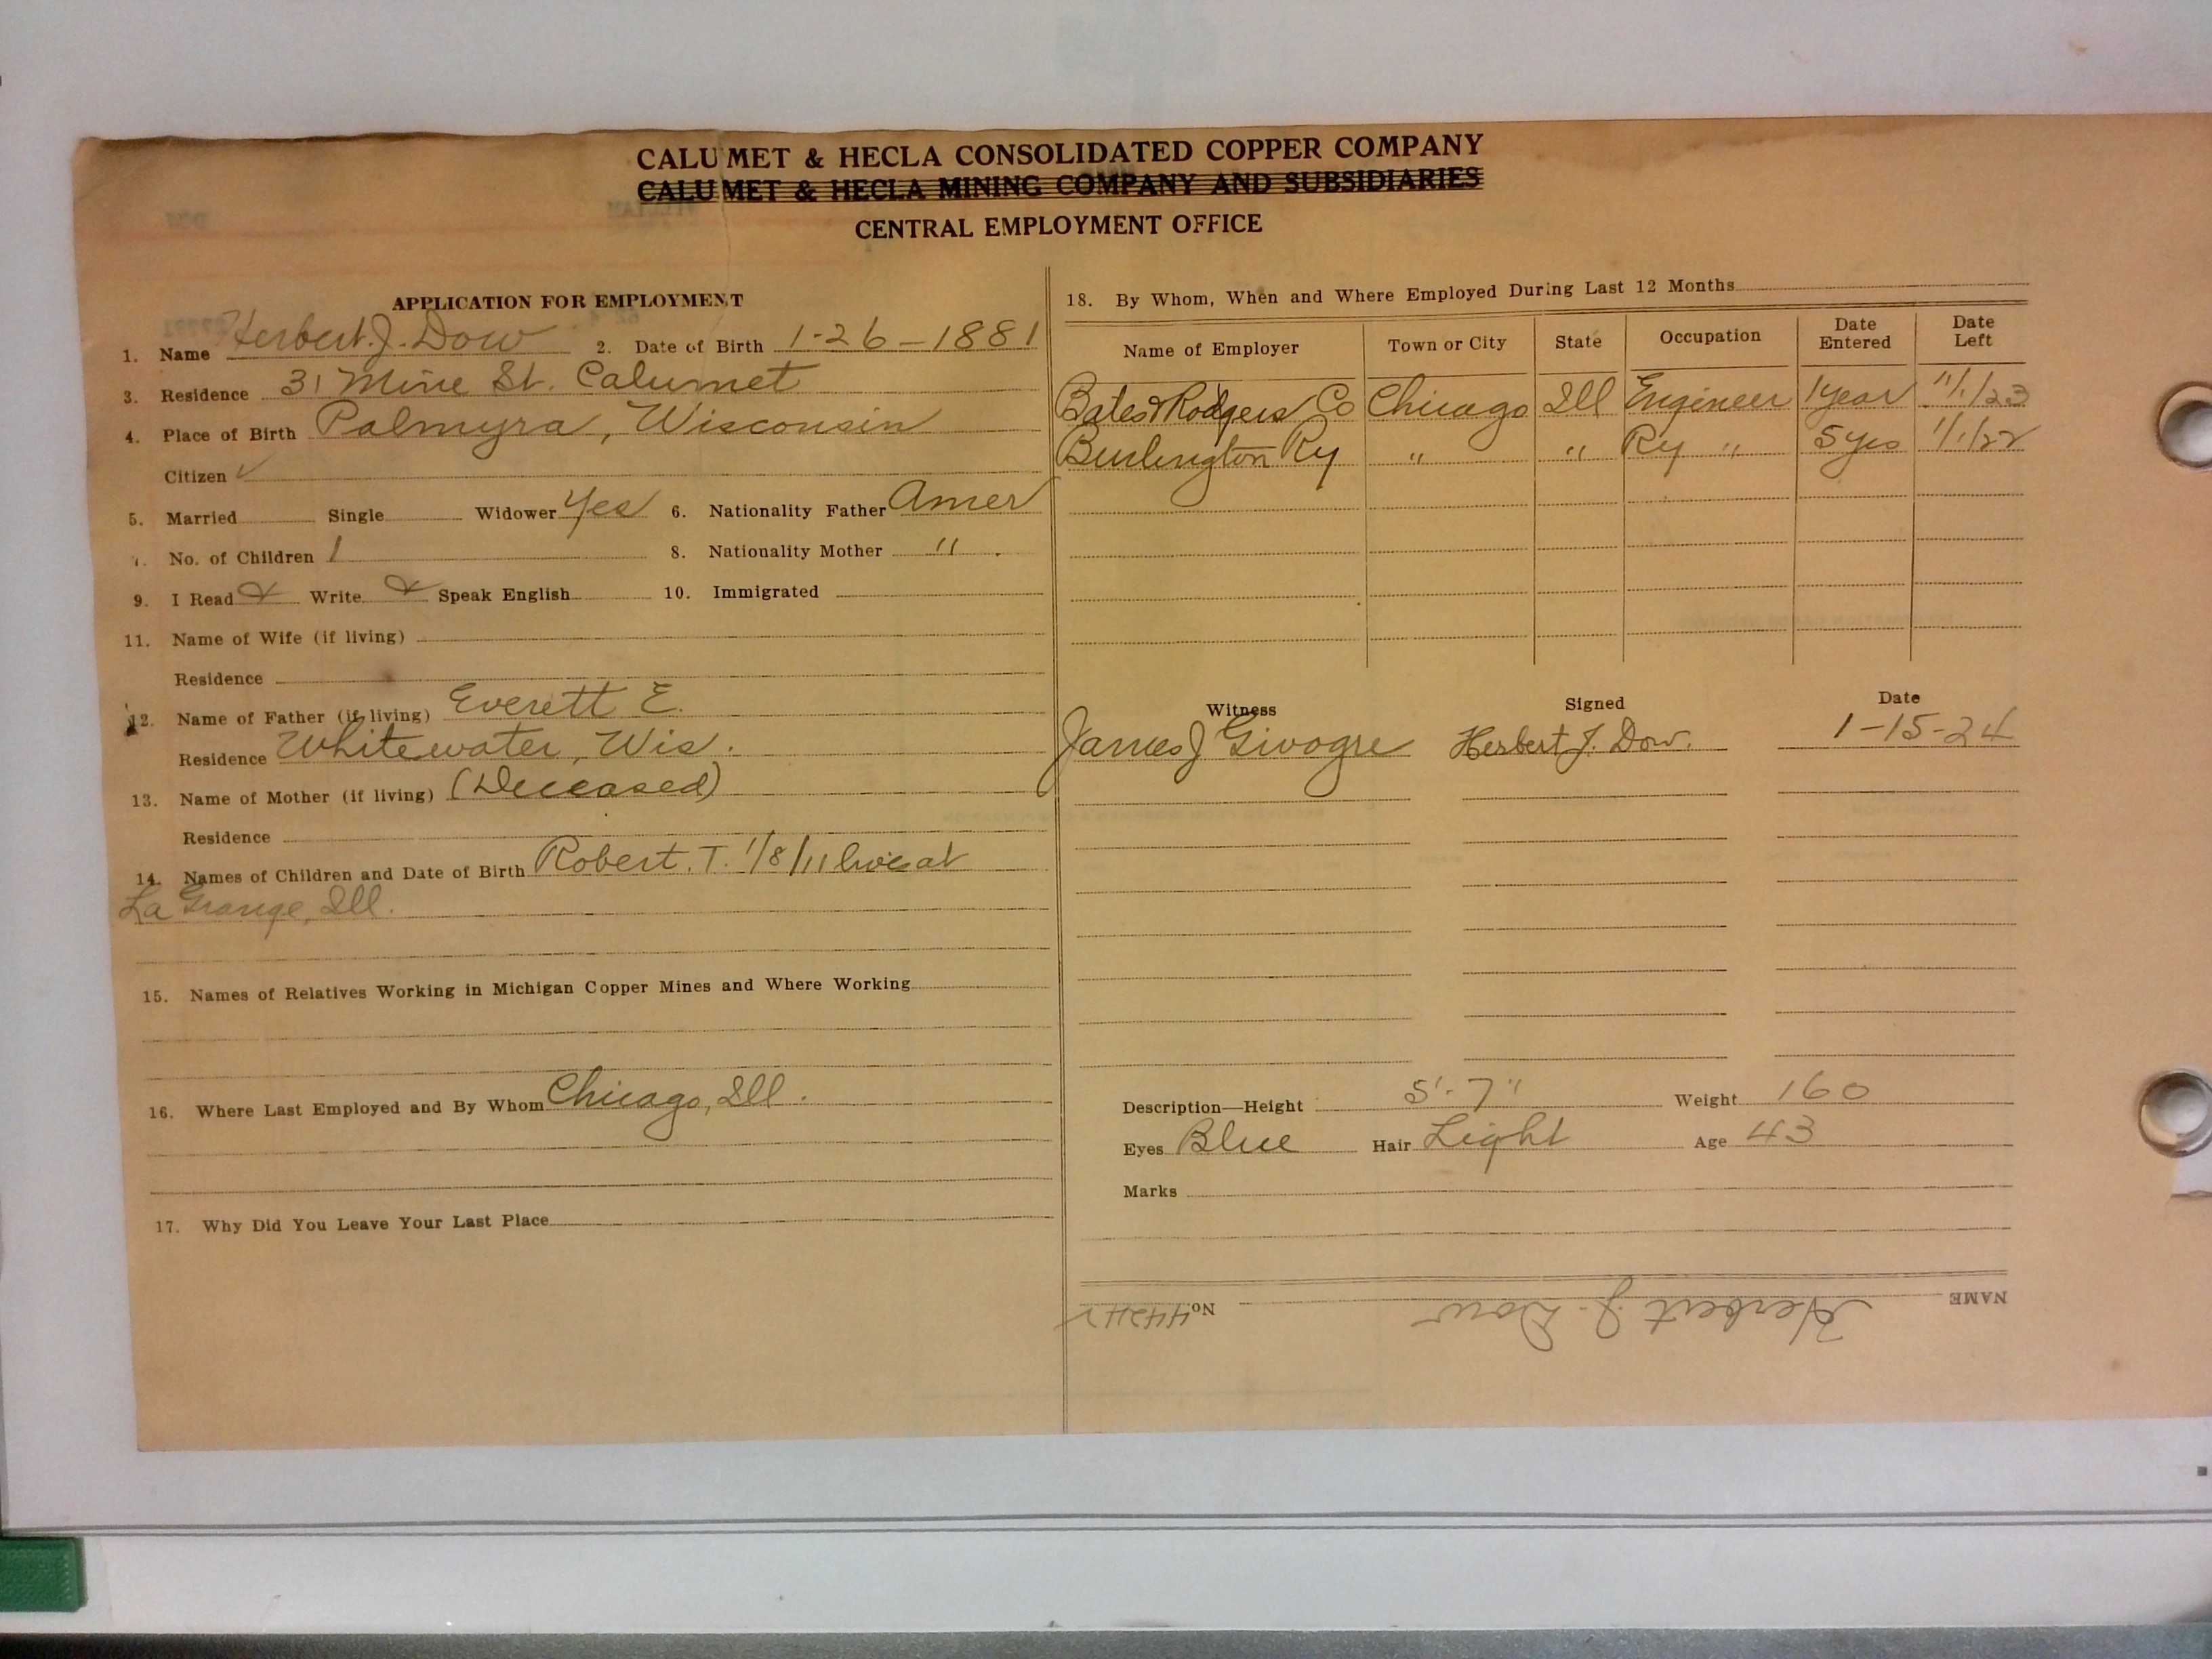 CALUMET & HECLA CONSOLIDATED COPPER COMPANY
CALUMET & HECLA MINING COMPANY AND SUBSIDIARIES
CENTRAL EMPLOYMENT OFFICE
APPLICATION FOR EMPLOYMENT
1. Name Herbert. J. Dow 2. Date of Birth 1-26-1881
3. Residence 31 Mine St. Calumet
4. Place of Birth Palmyra, Wisconsin
Citizen ✓
5. Married Single Widower Yes 6. Nationality Father Amer
7. No. of Children 1 8. Nationality Mother "
9. I Read Write Speak English 10. Immigrated
11. Name of Wife (if living)
Residence
12. Name of Father (if living) Everett E.
Residence Whitewater, Wis.
13. Name of Mother (if living) (Deceased)
Residence
14. Names of Children and Date of Birth Robert. T. 1/8/11 lives at
La Grange, Ill.
15. Names of Relatives Working in Michigan Copper Mines and Where Working
16. Where Last Employed and By Whom Chicago, Ill.
17. Why Did You Leave Your Last Place
18. By Whom, When and Where Employed During Last 12 Months
Name of Employer Town or City State Occupation Date Entered Date Left
Bates & Rodgers Co Chicago Ill Engineer 1 year 11/1/23
Burlington Ry " " Ry " 5 yrs 1/1/22
Witness Signed Date
James J Givogre Herbert J. Dow. 1-15-24
Description—Height 5'-7" Weight 160
Eyes Blue Hair Light Age 43
Marks
NAME Herbert J. Dow No.